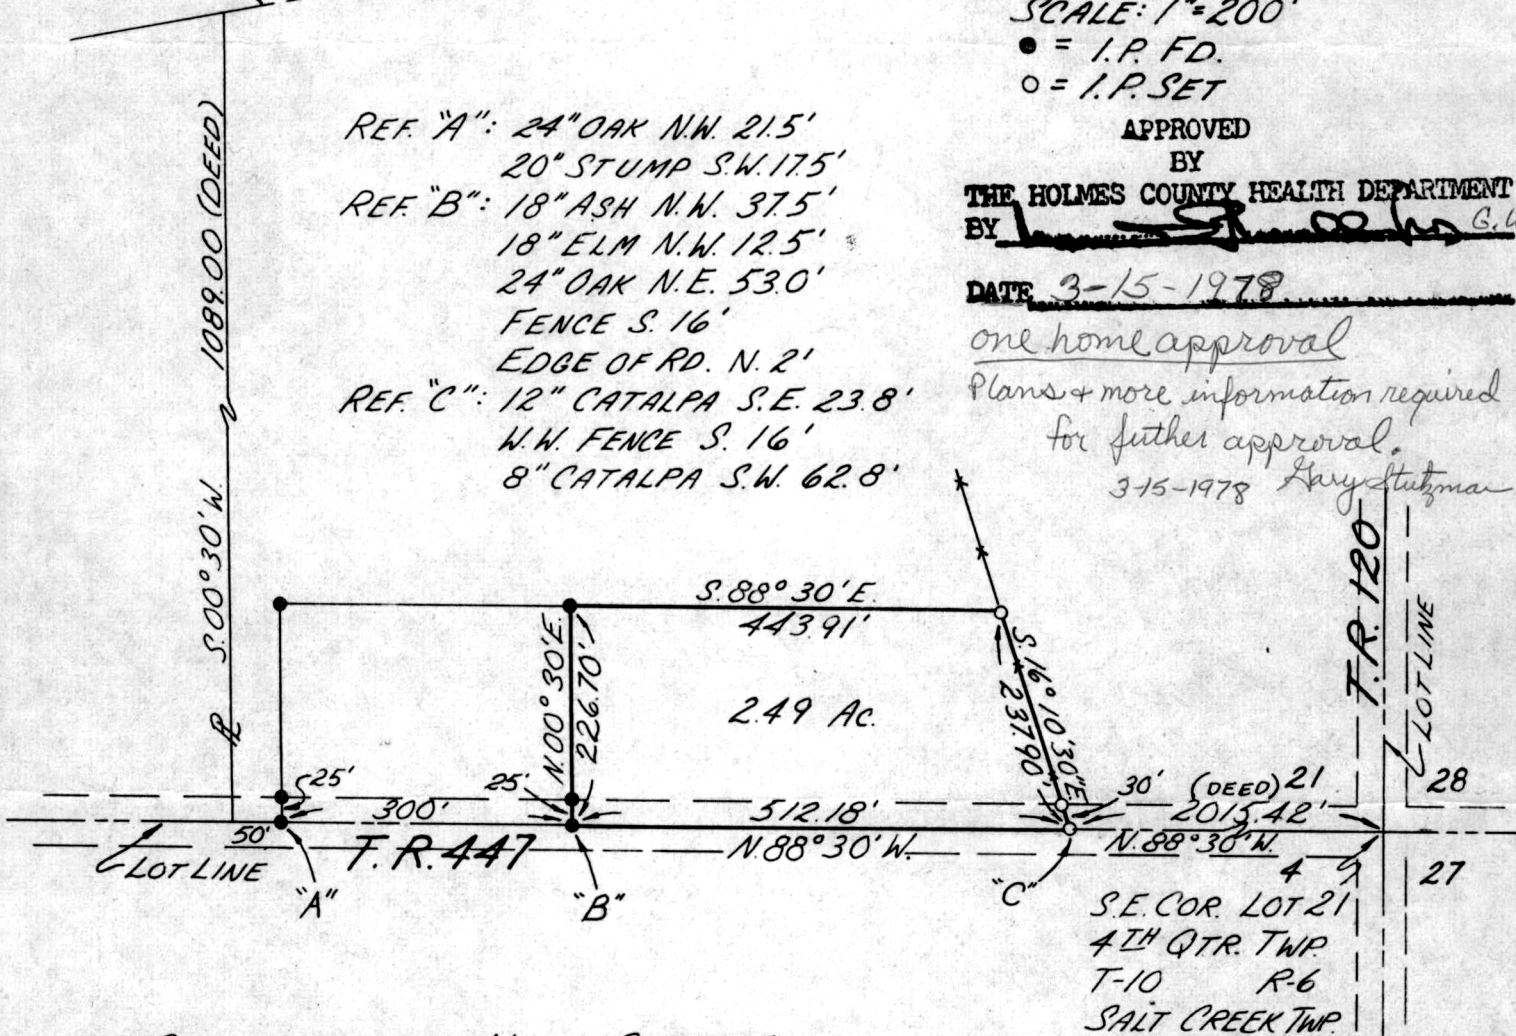 SCALE: 1"=200'
● = I.P. FD.
○ = I.P. SET
APPROVED
BY
THE HOLMES COUNTY HEALTH DEPARTMENT
BY
DATE 3-15-1978
one home approval
Plans + more information required
for futher approval.
3-15-1978 Gary Stutzman
REF. "A": 24" OAK N.W. 21.5'
20" STUMP S.W. 17.5'
REF. "B": 18" ASH N.W. 37.5'
18" ELM N.W. 12.5'
24" OAK N.E. 53.0'
FENCE S. 16'
EDGE OF RD. N. 2'
REF. "C": 12" CATALPA S.E. 23.8'
W.W. FENCE S. 16'
8" CATALPA S.W. 62.8'
S.00°30'W. 1089.00 (DEED)
S.88°30'E.
443.91'
N.00°30'E.
226.70'
2.49 AC.
S.16°10'30"E.
237.90'
T.R. 120
LOT LINE
25'
300'
25'
512.18'
30'
(DEED) 21
2015.42'
28
50'
T.R. 447
N.88°30'W.
N.88°30'W.
LOT LINE
4
27
"A"
"B"
"C"
S.E. COR. LOT 21
4TH QTR. TWP.
T-10 R-6
SALT CREEK TWP.